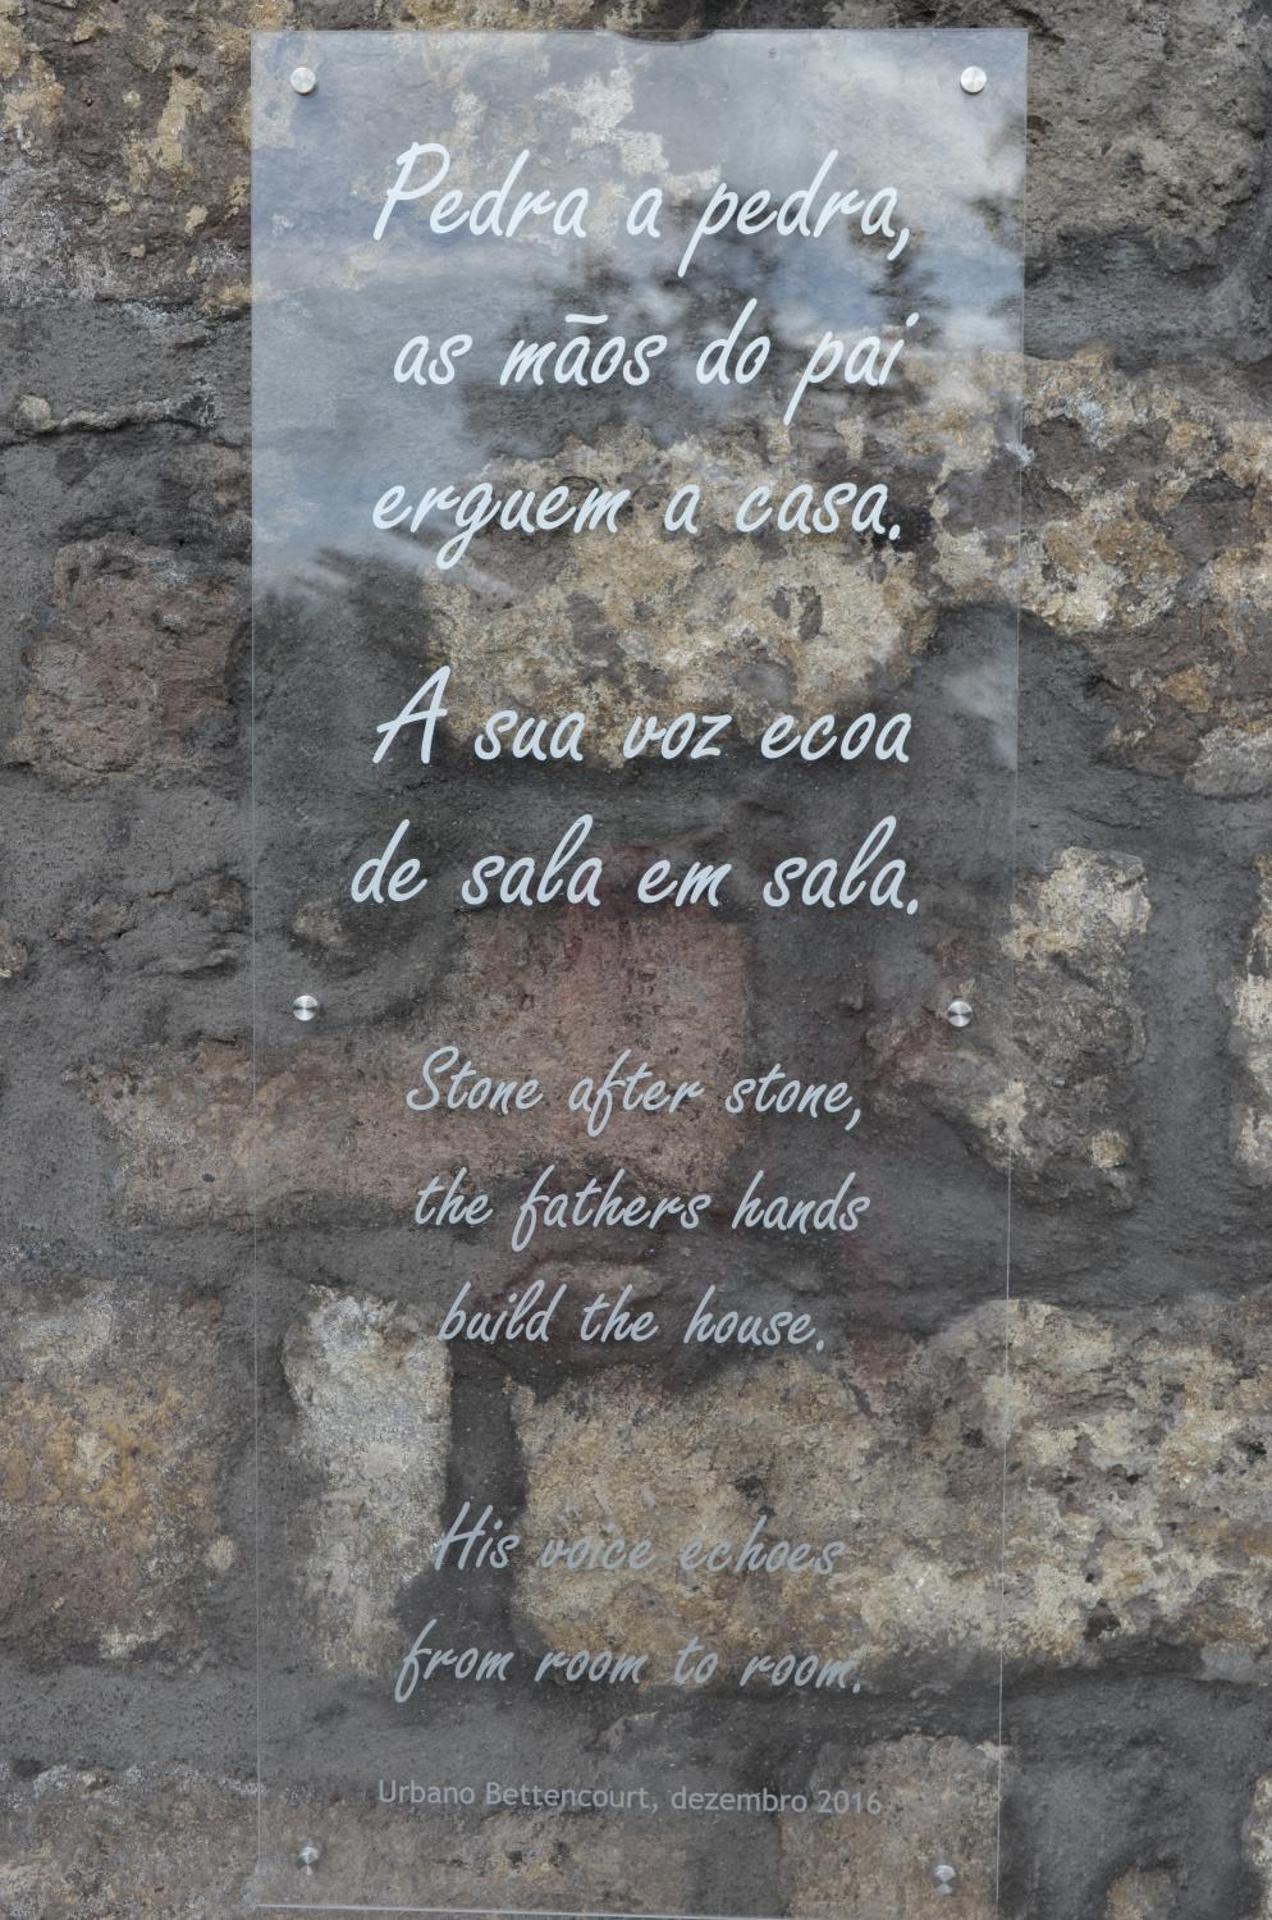 Pedra a pedra,
as mãos do pai
erguem a casa.
A sua voz ecoa
de sala em sala.
Stone after stone,
the fathers hands
build the house.
His voice echoes
from room to room.
Urbano Bettencourt, dezembro 2016